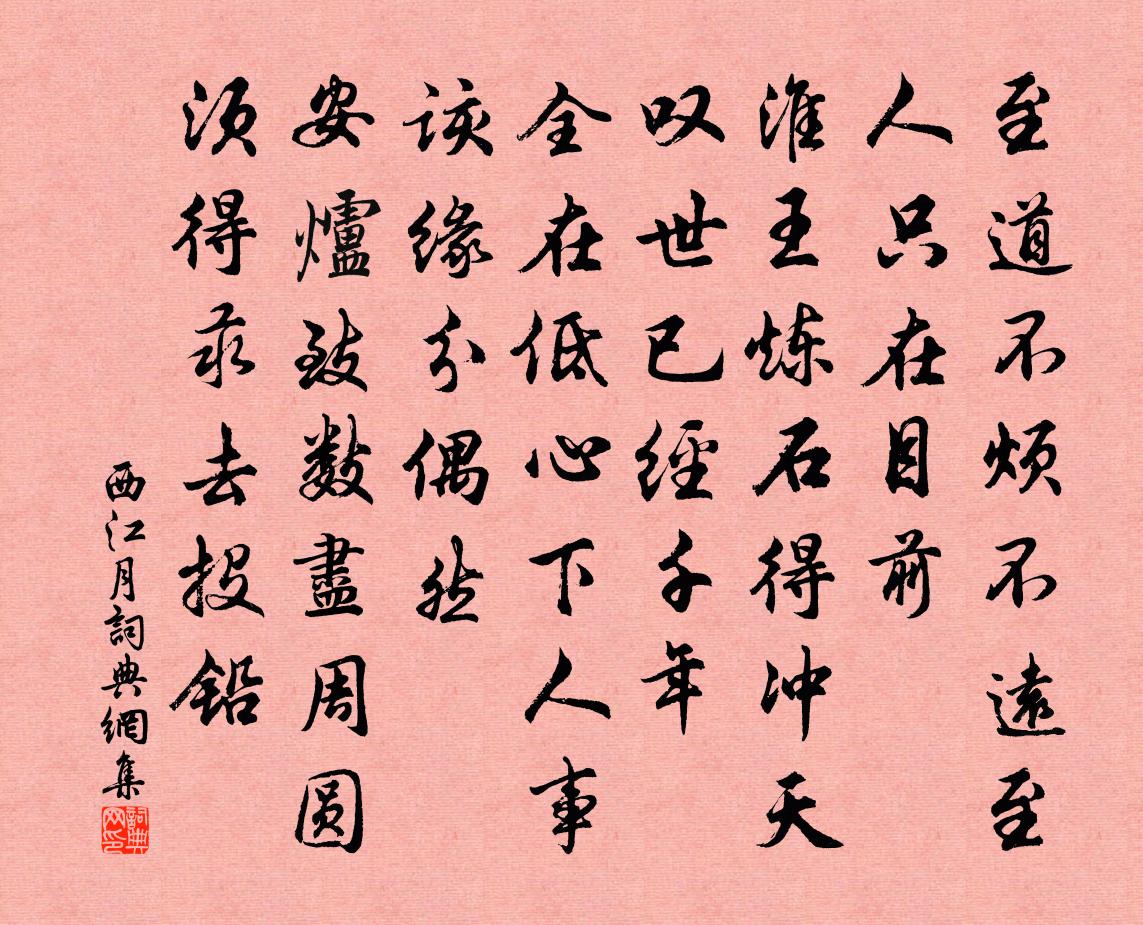 至道不烦不遠至
人只在目前
淮王炼石得冲天
叹世已經千年
全在低心下人事
该缘分偶然
安爐致數盡周圆
须得汞去投铅
西江月詞典網集
詞典网印